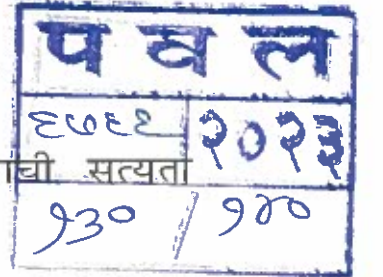 प व ल
६७६६ २०२३
ाची सत्यता
१३० / १४०